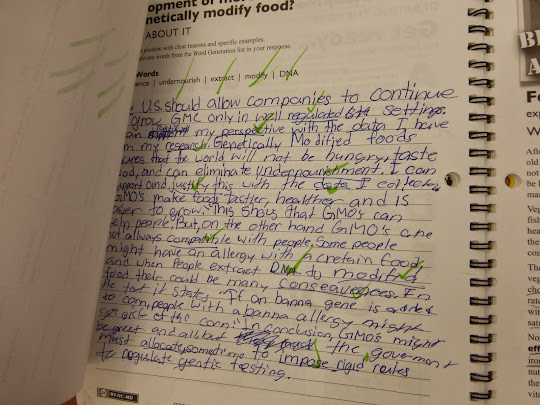 opment of mor
netically modify food?
ABOUT IT
position with clear reasons and specific examples.
elevant words from the Word Generation list in your response.
Words
ence | undernourish | extract | modify | DNA
U.S. should allow companies to continue
grow GMC only in well regulated settings.
an my perspective with the data I have
m my research. Genetically Modified foods
ures that the world will not be hungry, taste
ood, and can eliminate Undernourishment. I can
pport and justify this with the data I collected
GMO's make foods tastier, healthier and is
asier to grow. This shows that GMO's can
elp people. But, on the other hand GMO's are
not always compatible with people. Some people
might have an allergy with a cretain food
and when people extract DNA to modified
food their could be many consequences. In
the text it stats, "If an banna gene is added
to corn, people with a banna allergy might
get sick of the corn." In conclusion, GMO's might
be great and all but the goverment
must allocate, sometime to impose rigid rules
to regulate gentic testing.
BY-NC-ND
BE
A
Fo
exp
W
Afte
old
not
be
Veg
fish
hea
the
co
The
veg
cho
rate
with
satu
No
effi
iron
nut
the
vita